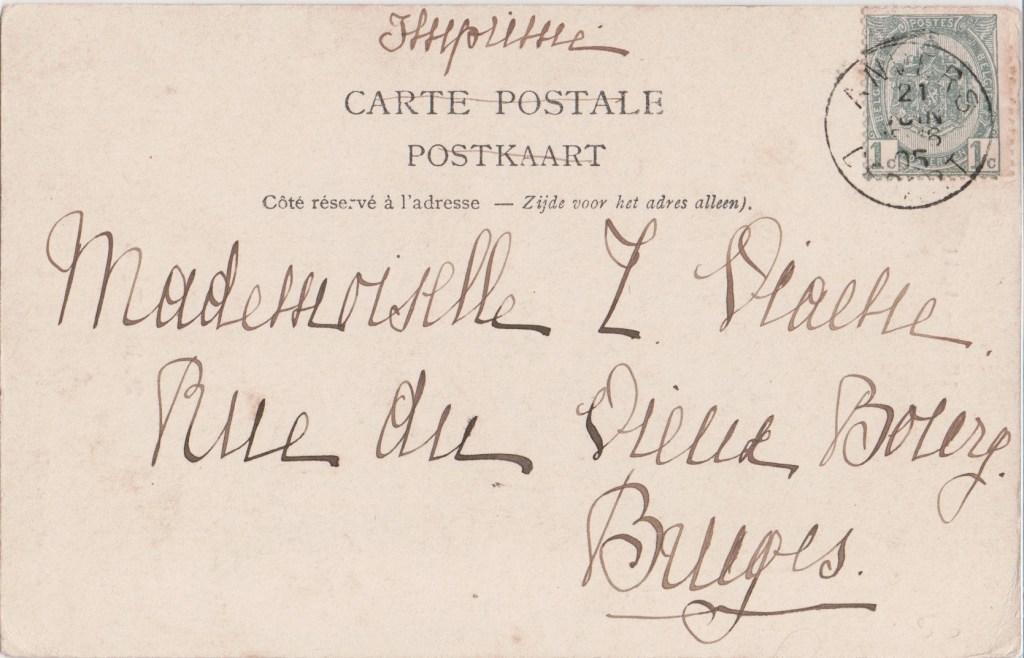 Imprimé
CARTE POSTALE
POSTKAART
Côté réservé à l'adresse — Zijde voor het adres alleen).
POSTES
1c 1c
ANVERS
21
JUIN
05
Mademoiselle Z. Viaene.
Rue du Vieux Bourg.
Bruges.